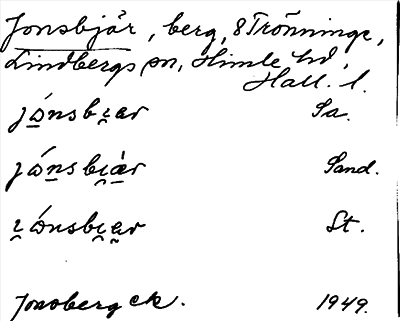 Jonsbjär, berg, 8 Trönninge,
Lindbergs sn, Himle hd,
Hall. l.
jó̱nsbi̯er Sa.
jóṉsbi̯à̱r Sand.
i̯ónsbi̯e̯r St.
Jonsberg ck. 1949.